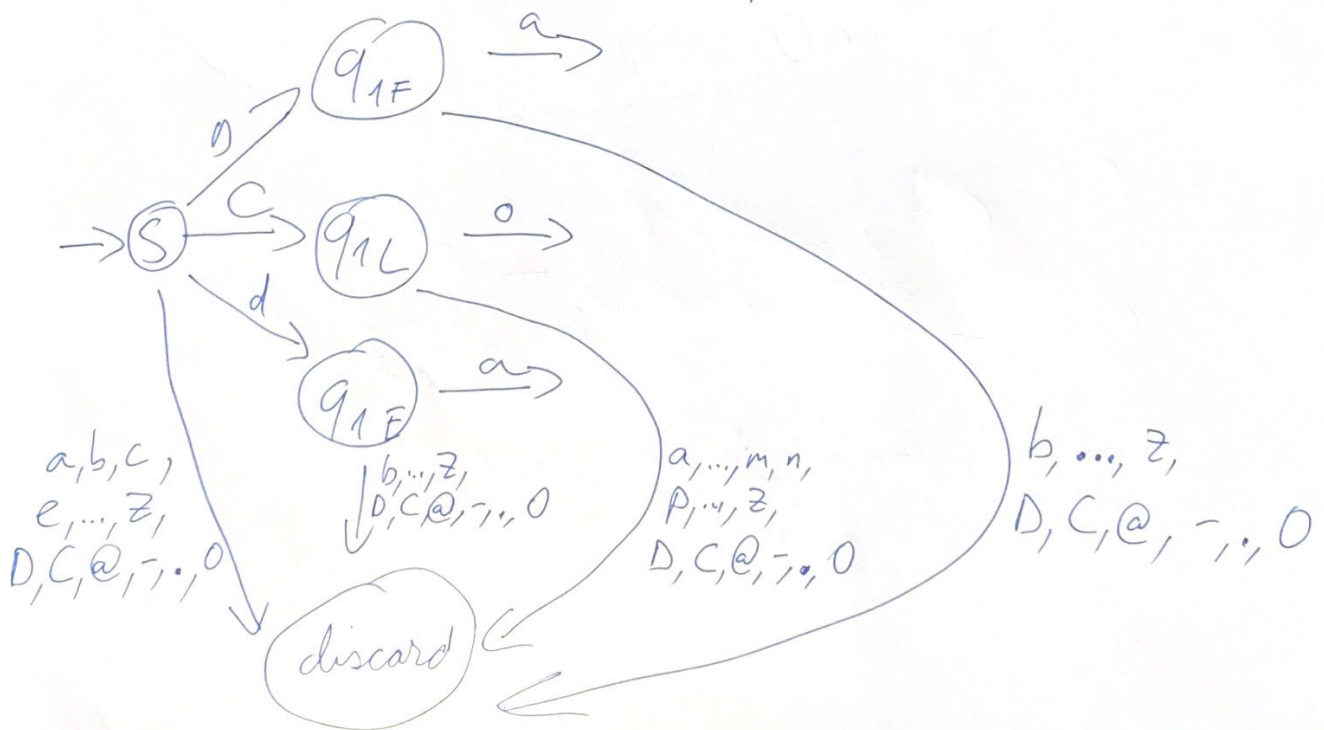 a
q1F
D
C
S
q1L
o
d
q1E
a
a,b,c,
e,...,z,
D,C,@,-,.,0
b,...,z,
D,C,@,-,.,0
a,...,m,n,
p,...,z,
D,C,@,-,.,0
b,...,z,
D,C,@,-,.,0
discard